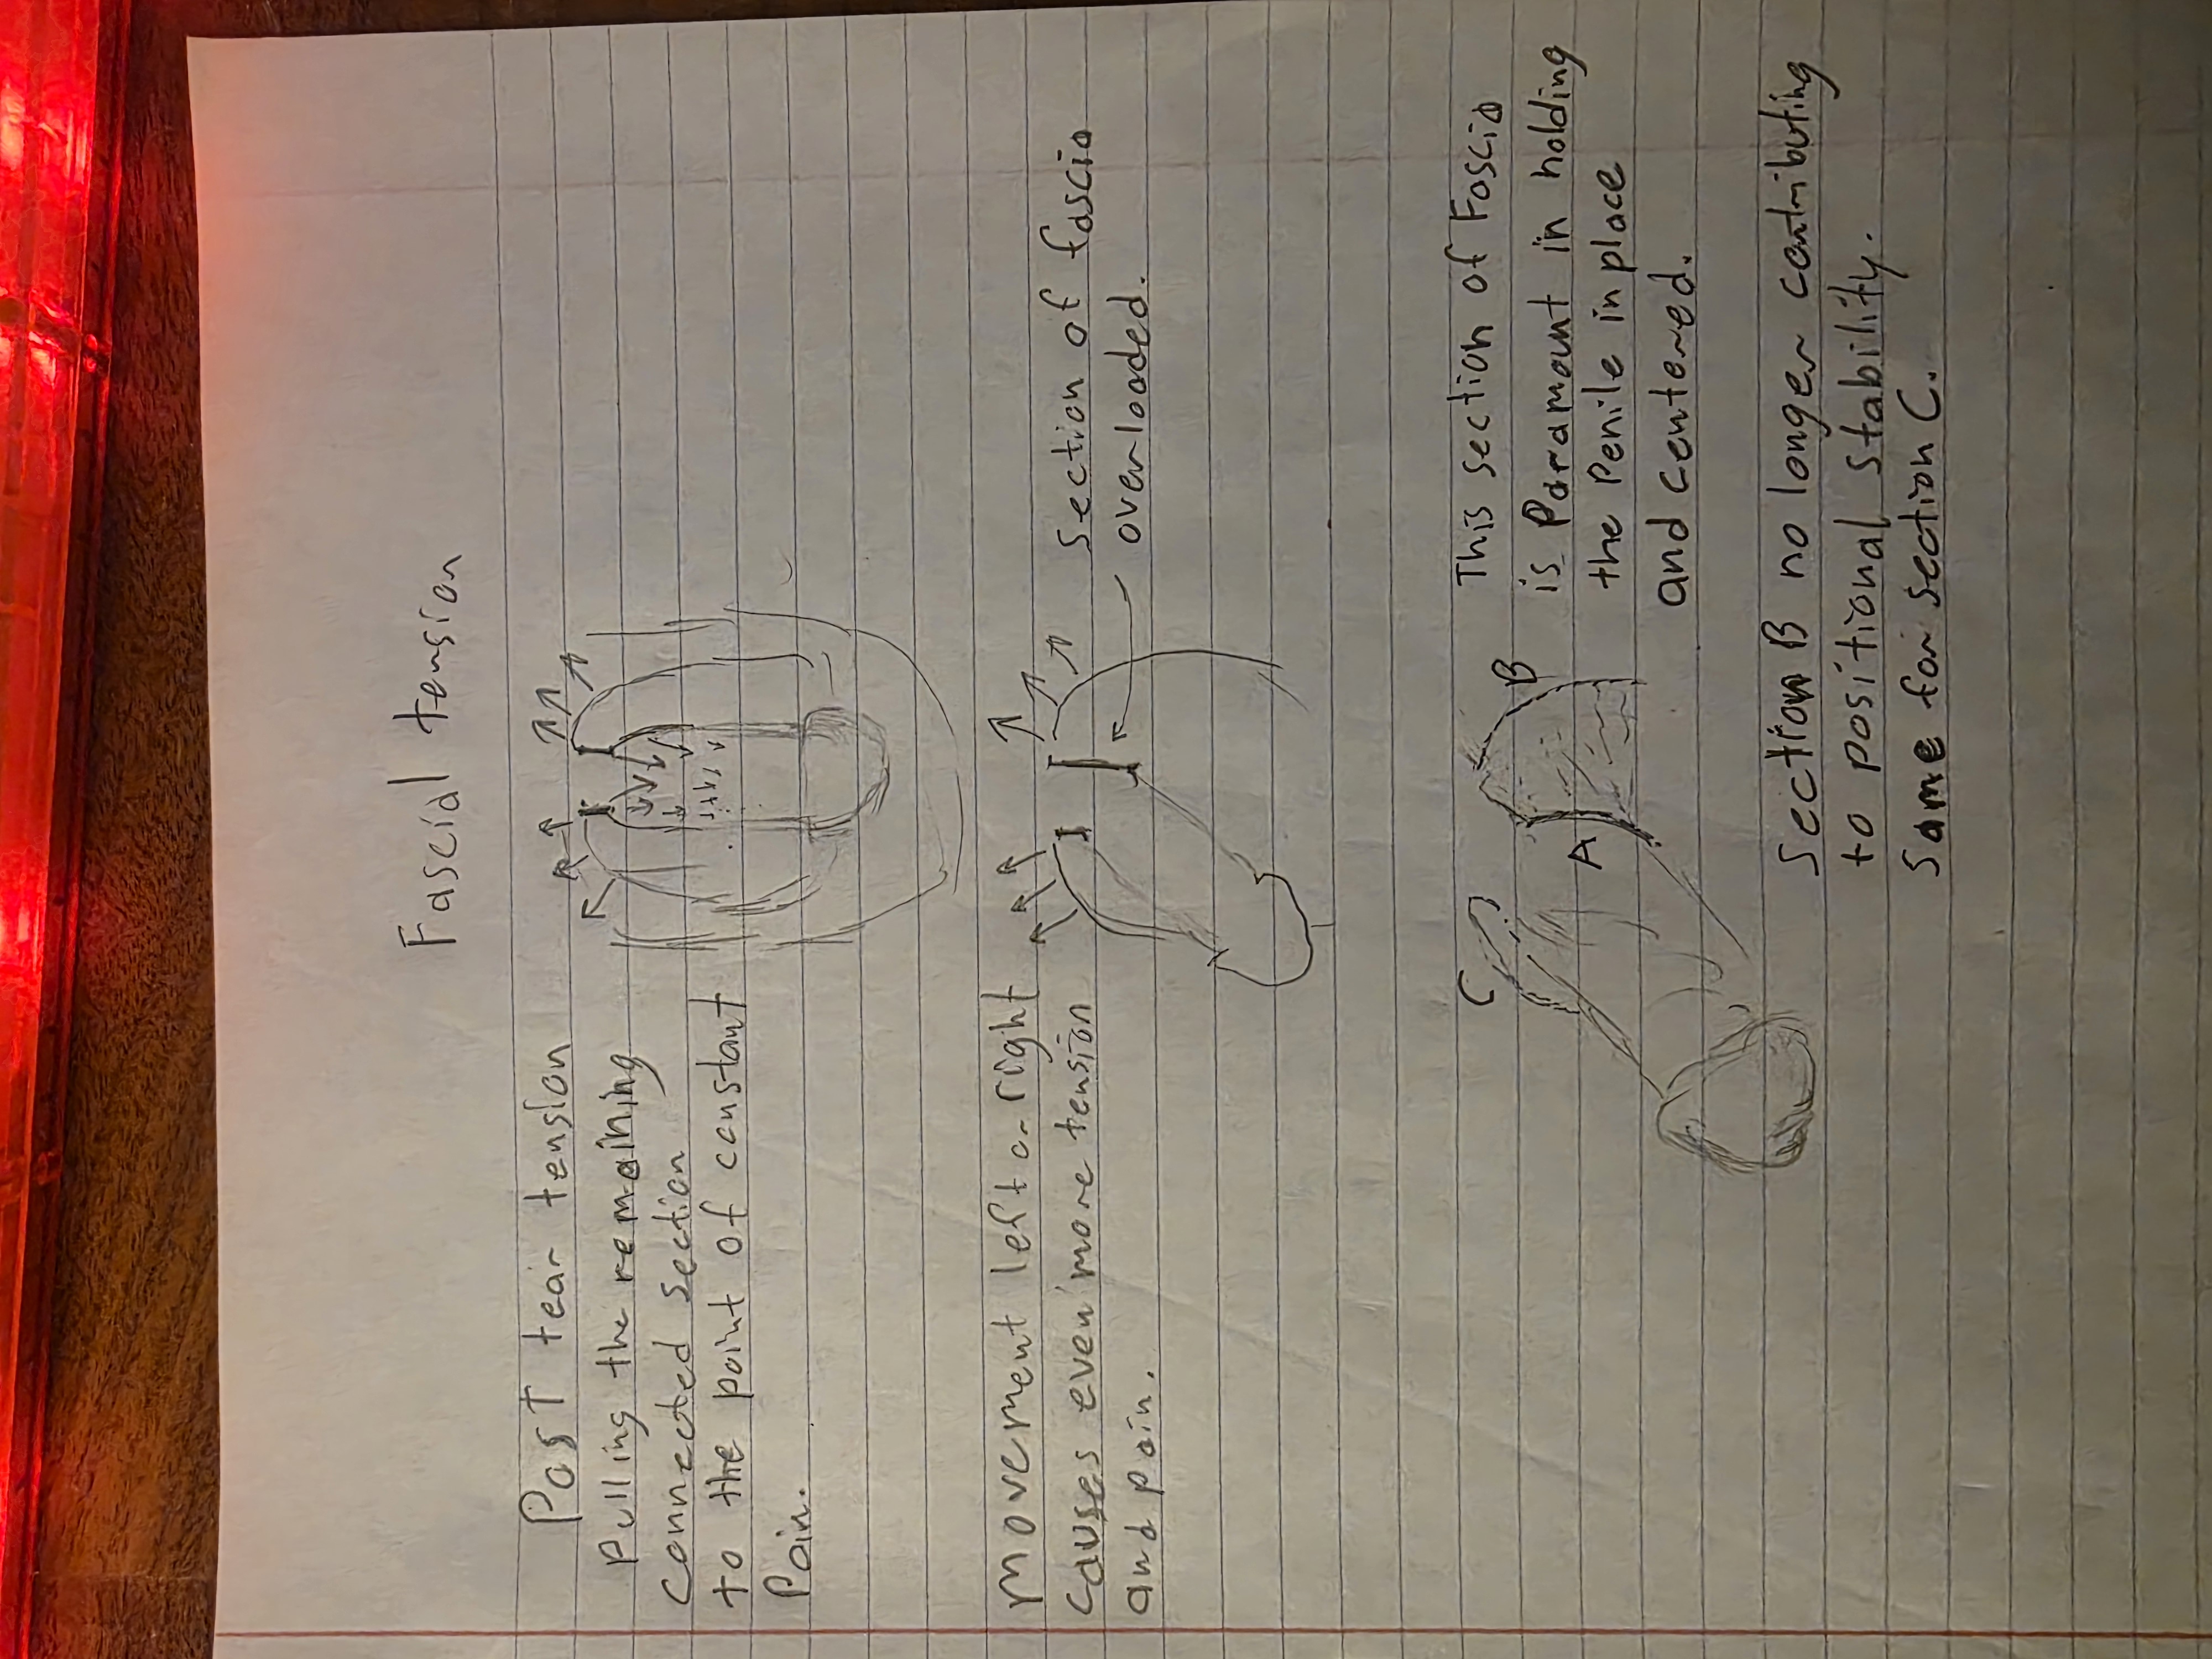 Fascial tension
Post tear tension
Pulling the remaining
connected section
to the point of constant
Pain.
movement left or right
causes even more tension
and pain.
Section of fascia
overloaded.
This section of Fascia
is Paramount in holding
the Penile in place
and centered.
C
B
A
Section B no longer contributing
to positional stability.
Same for section C.